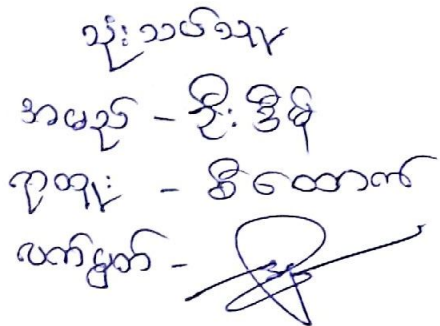 သုံးသပ်သူ
အမည် - ဦးဒီမို
ရာထူး - စီထောက်
လက်မှတ် -